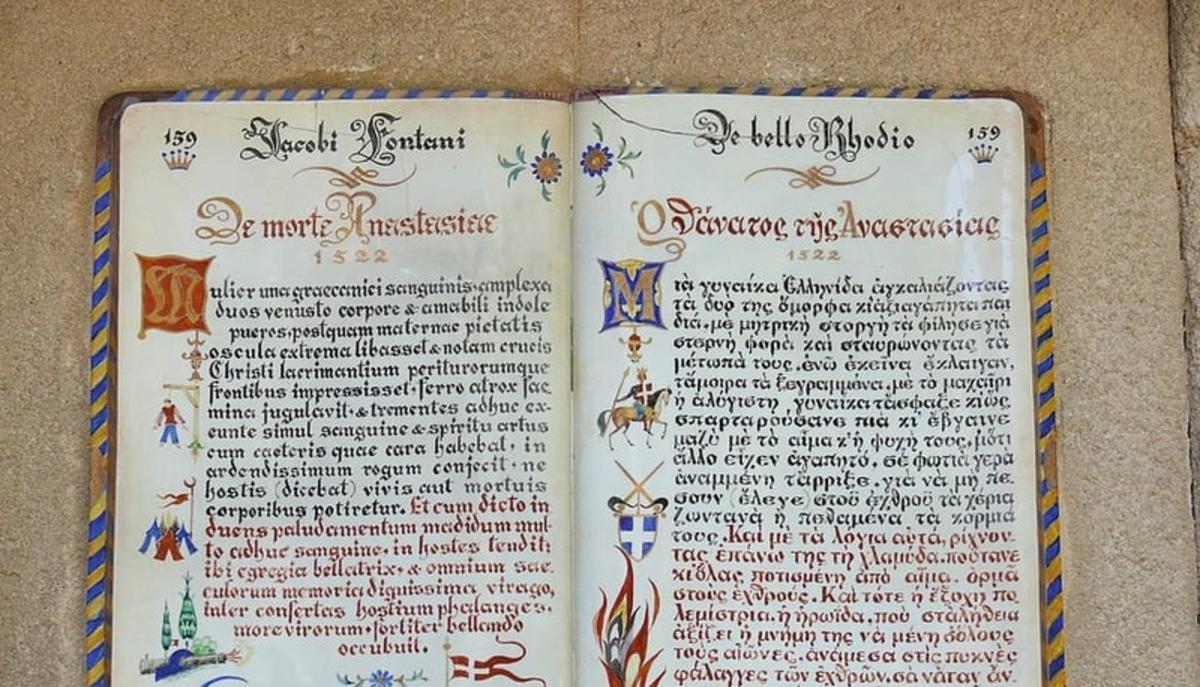 159
Jacobi Fontani
De morte Anastasiae
1522
Mulier una graecanici sanguinis amplexa
duos venusto corpore & amabili indole
pueros, postquam maternae pietatis
oscula extrema libasset & notam crucis
Christi lacrimantium periturorumque
frontibus impressisset, ferro atrox fae
mina jugulavit, & trementes adhuc ex-
eunte simul sanguine & spiritu artus
cum caeteris quae cara habebat, in
ardendissimum rogum conjecit, ne
hostis (dicebat) vivis aut mortuis
corporibus potiretur. Et cum dicto in
duens paludamentum madidum mul-
to adhuc sanguine, in hostes tendit:
ibi egregia bellatrix, & omnium sae-
culorum memoria dignissima virago,
inter confertas hostium phalanges,
more virorum, fortiter bellando
occubuit.
De bello Rhodio
159
Ὁ θάνατος τῆς Ἀναστασίας
1522
Μιὰ γυναίκα Ἑλληνίδα ἀγκαλιάζοντας
τὰ δυό της ὄμορφα κι ἀξιαγάπητα παι
διά, μὲ μητρικὴ στοργὴ τὰ φίλησε γιὰ
στερνὴ φορὰ καὶ σταυρώνοντας τὰ
μέτωπά τους, ἐνῶ ἐκεῖνα ἔκλαιγαν,
τάμοιρα τὰ ξεγραμμένα, μὲ τὸ μαχαίρι
ἡ ἀλόγιστη γυναίκα τάσφαξε κι ὅπως
σπαρταρούσανε πιὰ κι ἔβγαινε
μαζὺ μὲ τὸ αἷμα κ' ἡ ψυχή τους, μ' ὅτι
ἄλλο εἶχεν ἀγαπητό, σὲ φωτιὰ γερὰ
ἀναμμένη τάρριξε, γιὰ νὰ μὴ πέ-
σουν (ἔλεγε) στοῦ ἐχθροῦ τὰ χέρια
ζωντανὰ ἢ πεθαμένα τὰ κορμιά
τους. Καὶ μὲ τὰ λόγια αὐτά, ρίχνον-
τας ἐπάνω της τὴ χλαμύδα, πούτανε
κιόλας ποτισμένη ἀπὸ αἷμα, ὁρμᾶ
στοὺς ἐχθρούς. Καὶ τότε ἡ ἔξοχη πο
λεμίστρια, ἡ ἡρωΐδα, ποὺ στ' ἀλήθεια
ἀξίζει ἡ μνήμη της νὰ μένη σ' ὅλους
τοὺς αἰῶνες, ἀνάμεσα στὶς πυκνὲς
φάλαγγες τῶν ἐχθρῶν, σὰ νάταν ἄν-